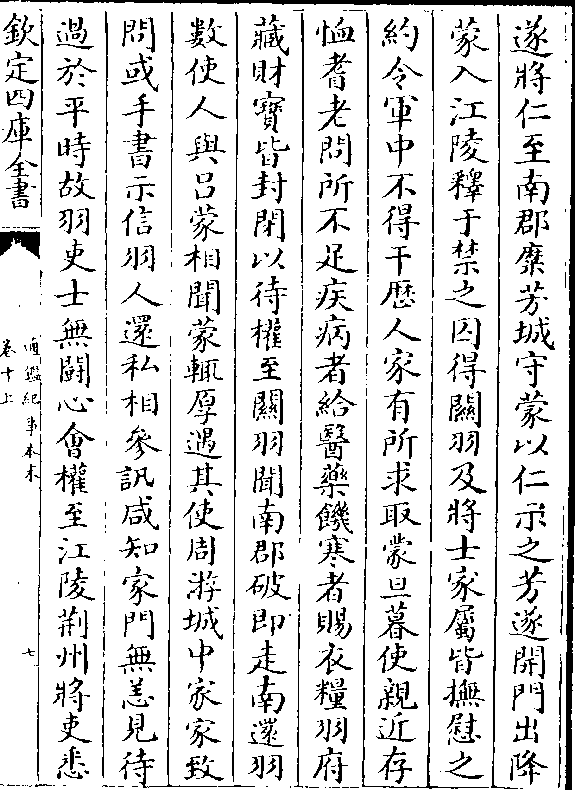 遂將仁至南郡糜芳城守蒙以仁示之芳遂開門出降
蒙入江陵釋于禁之囚得關羽及將士家屬皆撫慰之
約令軍中不得干歴人家有所求取蒙旦暮使親近存
恤耆老問所不足疾病者給醫藥饑寒者賜衣糧羽府
藏財寳皆封閉以待權至關羽聞南郡破即走南還羽
數使人與吕蒙相聞蒙輒厚遇其使周游城中家家致
問或手書示信羽人還私相參訊咸知家門無恙見待
過於平時故羽吏士無鬭心會權至江陵荆州將吏悉
欽定四庫全書
通鑑紀事本末
卷十上
七